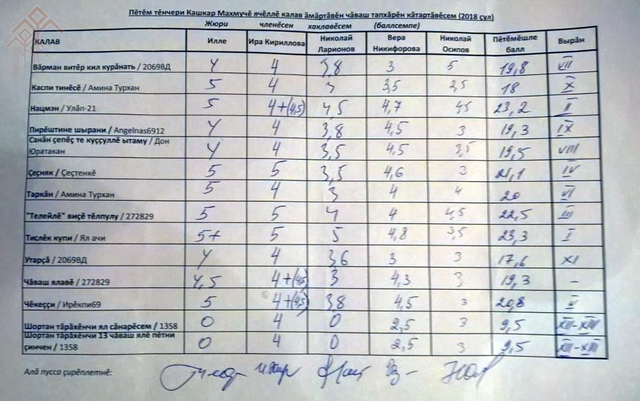 Пӗтӗм тӗнчери Кашкар Махмучӗ ячӗллӗ калав ӑмӑртӑвӗн чӑваш тапхӑрӗн кӑтартӑвӗсем (2018 ҫул)
Жюри членӗсен хаклавӗсем (баллсемпе)
КАЛАВ Илле Ира Кириллова Николай Ларионов Вера Никифорова Николай Осипов Пӗтӗмӗшле балл Вырӑн
Вӑрман витӗр кил курӑнать / 2069ВД 4 4 3,8 3 5 19,8 VII
Каспи тинӗсӗ / Амина Турхан 5 4 3 3,5 2,5 18 X
Нацмэн / Улӑп-21 5 4+(4,5) 4,5 4,7 4,5 23,2 II
Пирӗштине шырани / Angelnas6912 4 4 3,8 4,5 3 19,3 IX
Санӑн ҫепӗҫ те куҫҫуллӗ ытаму / Дон Юратакан 4 4 3,5 4,5 3,5 19,5 VIII
Ҫерҫик / Ҫеҫтенкӗ 5 5 3,5 4,6 3 21,1 IV
Таркӑн / Амина Турхан 5 4 3 4 4 20 VI
"Телейлӗ" виҫӗ тӗлпулу / 272829 5 5 4 4 4,5 22,5 III
Тислӗк купи / Ял ачи 5+ 5 5 4,8 3,5 23,3 I
Утарҫӑ / 2069ВД 4 4 3,6 3 3 17,6 XI
Чӑваш ялавӗ / 272829 4,5 4+(4,5) 3 4,3 3 19,3 –
Чӗкеҫҫи / Ирӗклӗ69 5 4+(4,5) 3,8 4,5 3 20,8 V
Шортан тӑрӑхӗнчи ял сӑнарӗсем / 1358 0 4 0 2,5 3 9,5 XII-XIII
Шортан тӑрӑхӗнчи 13 чӑваш ялӗ пӗтни ҫинчен / 1358 0 4 0 2,5 3 9,5 XII-XIII
Алӑ пусса ҫирӗплетнӗ: